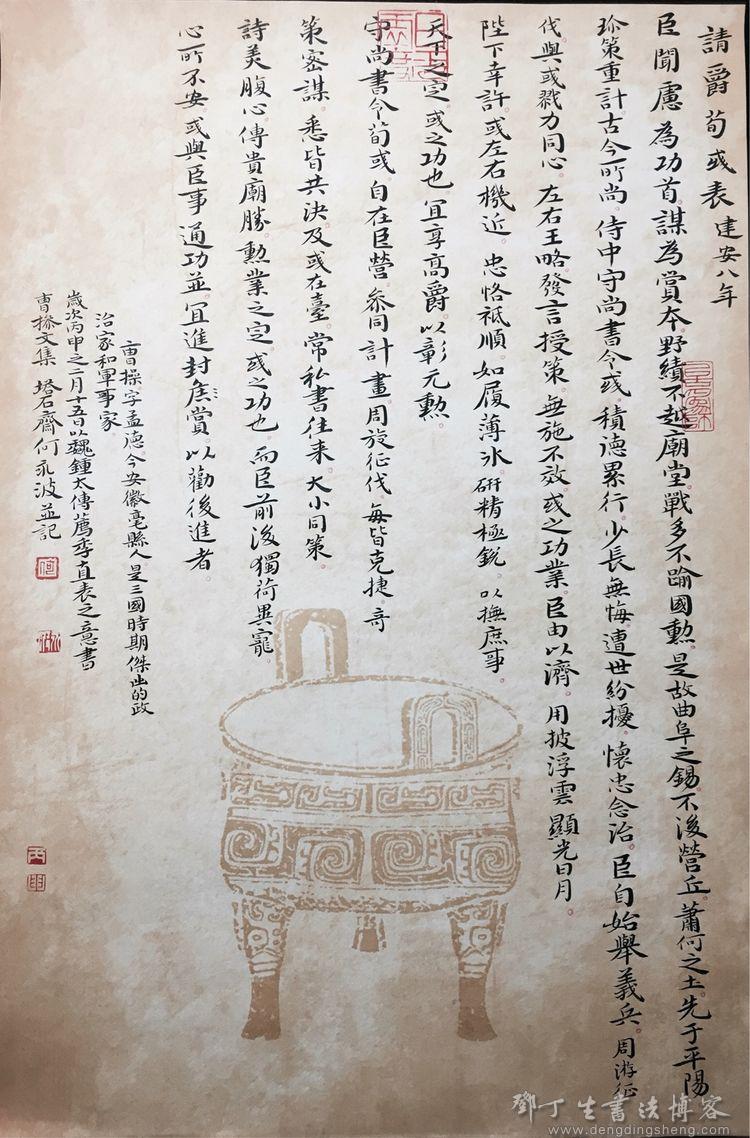 請爵荀彧表 建安八年
臣聞慮為功首。謀為賞本。野績不越廟堂。戰多不踰國勳。是故曲阜之錫。不後營丘。蕭何之土。先于平陽
珍策重計。古今所尚。侍中守尚書令彧。積德累行。少長無悔。遭世紛擾。懷忠念治。臣自始舉義兵。周游征
伐。與彧戮力同心。左右王略。發言授策。無施不效。彧之功業。臣由以濟。用披浮雲。顯光日月。
陛下幸許。彧左右機近。忠恪祗順。如履薄冰。研精極銳。以撫庶事。
天下之定。彧之功也。宜享高爵。以彰元勳。
守尚書令荀彧。自在臣營。參同計畫。周旋征伐。每皆克捷。奇
策密謀。悉皆共決。及彧在臺。常私書往來。大小同策。
詩美腹心。傳貴廟勝。勳業之定。彧之功也。而臣前後獨荷異寵。
心所不安。彧與臣事通功並。宜進封侯賞。以勸後進者。
曹操字孟德今安徽亳縣人是三國時期傑出的政
治家和軍事家
歲次丙申之二月十五日以魏鍾太傅薦季直表之意書
曹操文集 塔石齋何永波並記
鄧丁生書法博客
www.dengdingsheng.com